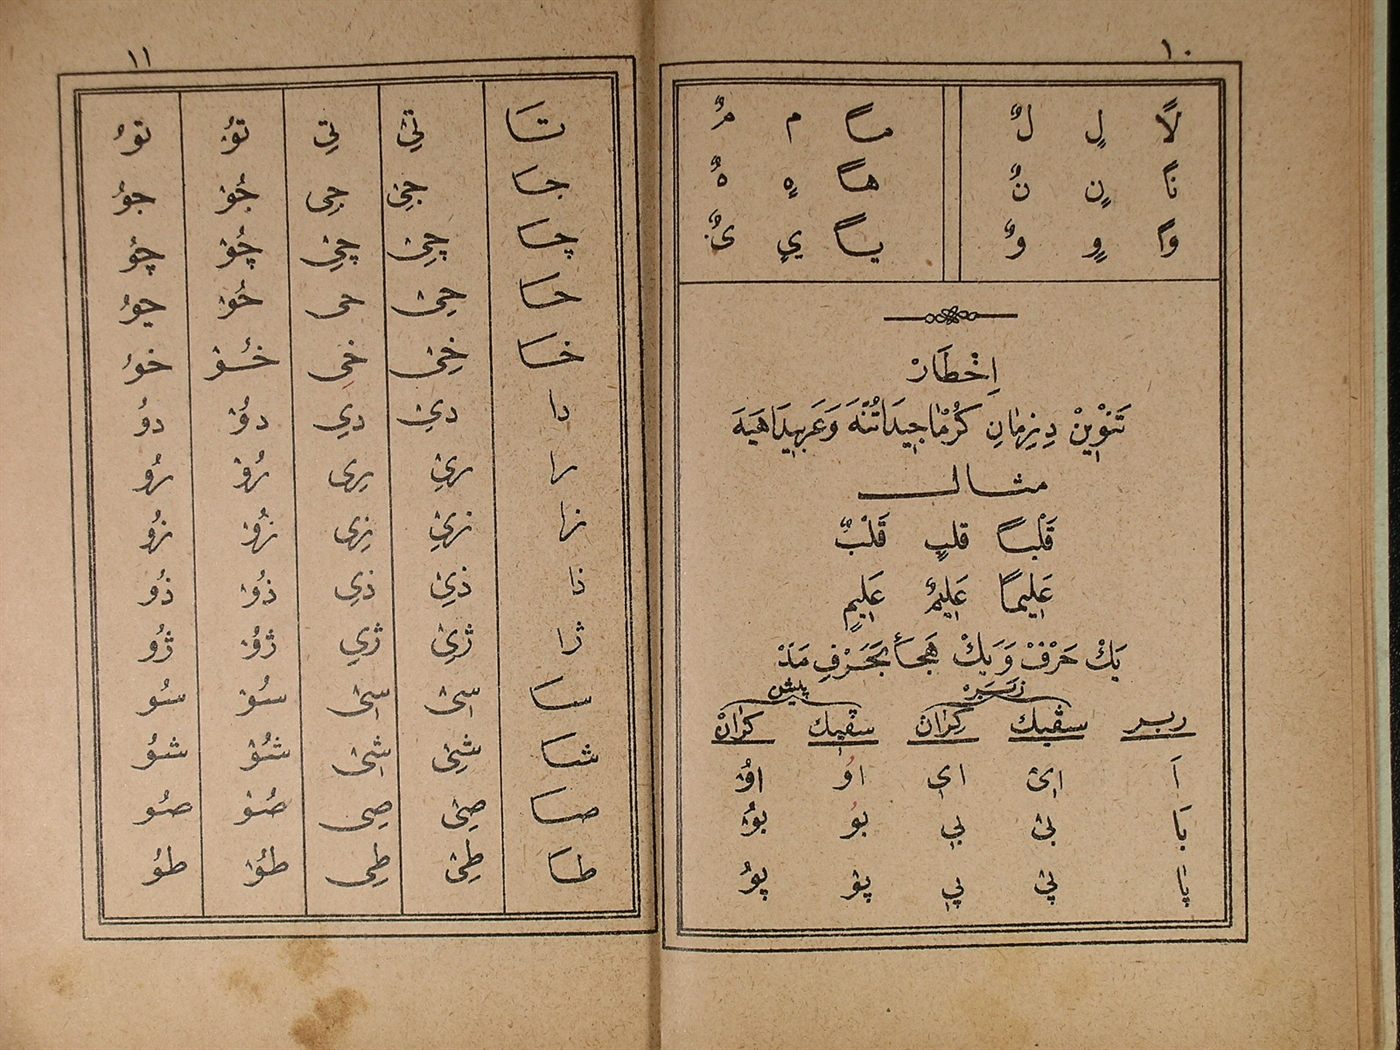 ١٠
لاً لٍ لٌ ماً م مٌ
ناً نٍ نٌ هاً هٍ هٌ
واً وٍ وٌ ياً يٍ ىٌ
اِخْطَارْ
تَنْوِينْ دِزِمَانِ كُرْمَاجِيدَا تُنَّهَ وَعَرَبِيدَا هَيَهَ
مثال
قَلْباً قلبٍ قَلْبٌ
عَلِيماً عَلِيمٌ عَلِيمٍ
يَكْ حَرْفْ وَ يَكْ هَجَأ بَحَرْفِ مَدْ
زَبَرْ پيش
ربر سڤيك كِرَانْ سڤيك كِرَانْ
اَ اِىْ اىِ اوُ اوُ
بَا بىْ بىِ بوُ بوُ
پا پىْ پىِ پوْ پوُ
١١
تا تِىْ تِى توُ توُ
جا جِىْ جِى جُوْ جوُ
چا چِىْ چِىْ چُوْ چوُ
حا حِىْ حى حُوْ حوُ
خا خِىْ خى خُوْ خوُ
دا دىْ دىِ دوُ دوُ
را رىْ رِى رُوْ رُو
زا زىْ زِى زُوْ زُو
ذا ذىْ ذىِ ذُوْ ذُو
ژا ژىْ ژىِ ژُوْ ژُو
سا سِىْ سِىْ سُوْ سُو
شا شِىْ شِىْ شُوْ شوُ
صا صِىْ صِى صُوْ صُو
طا طِىْ طِى طُوْ طوُ